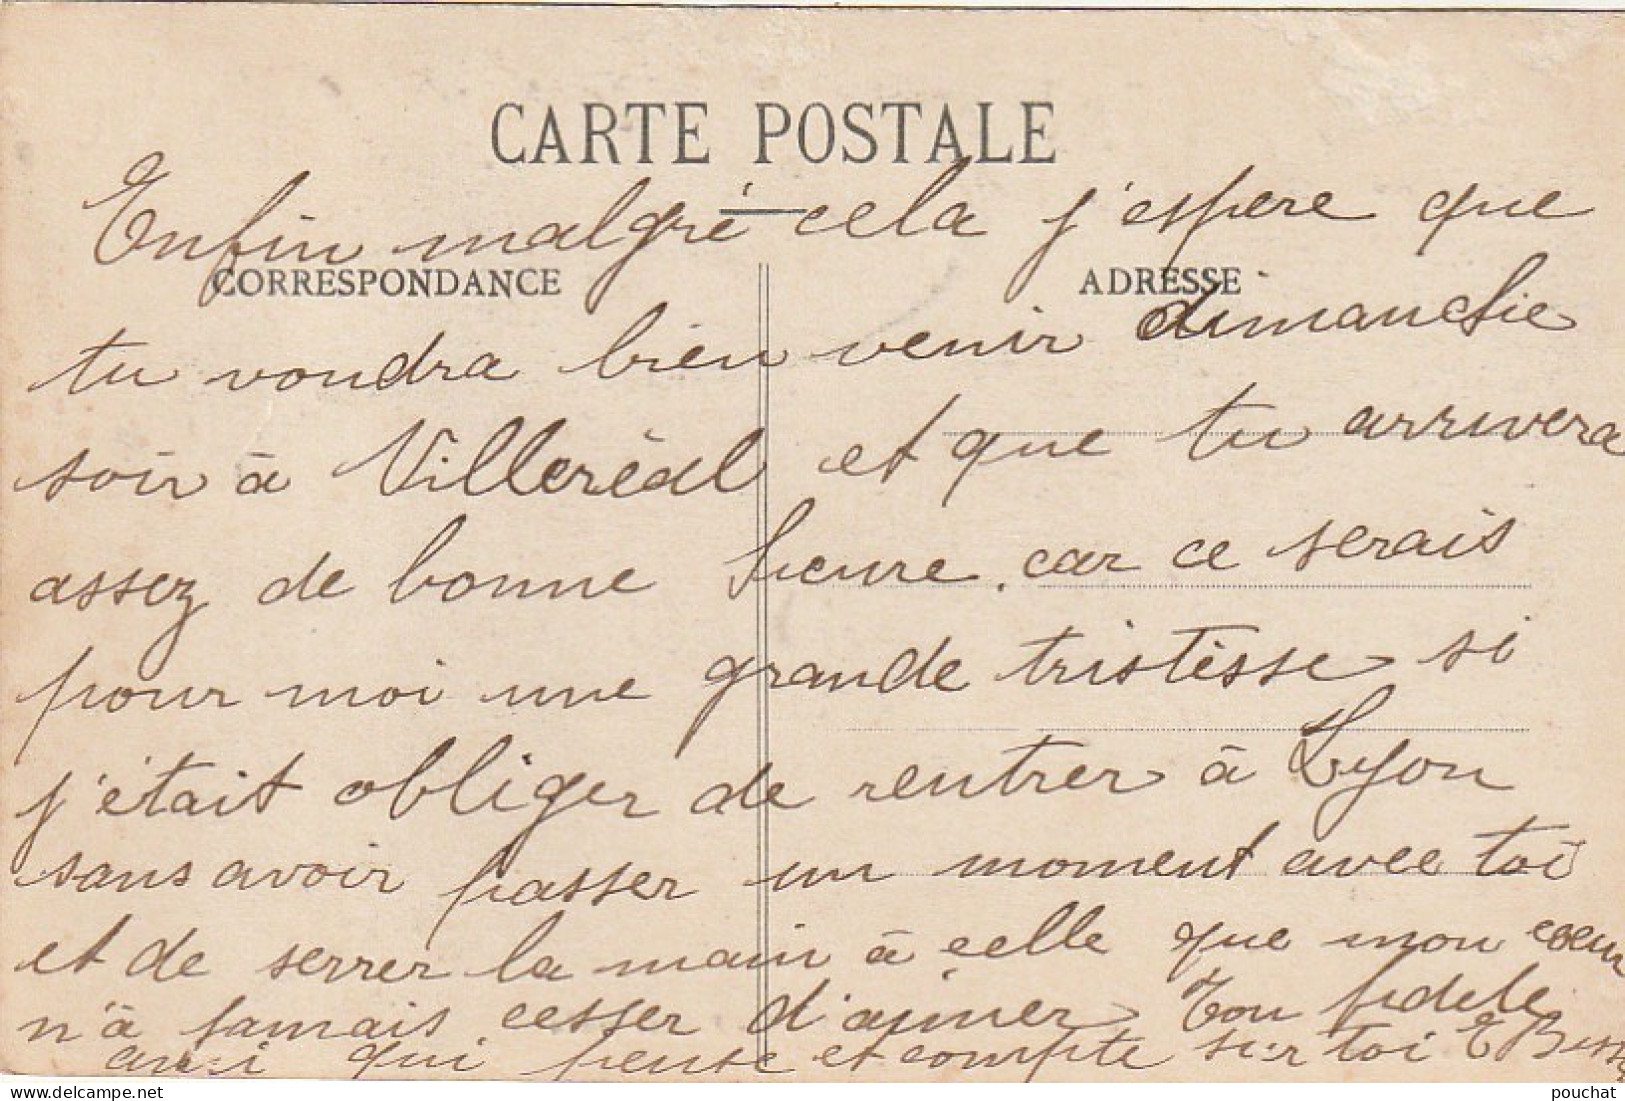 CARTE POSTALE
Enfin malgré cela j'espere que
CORRESPONDANCE
ADRESSE
tu voudra bien venir dimanche
soir à Villeréal et que tu arrivera
assez de bonne heure. car ce serais
pour moi une grande tristèsse si
j'était obliger de rentrer à Lyon
sans avoir passer un moment avec toi
et de serrer la main à celle que mon coeur
n'à jamais cesser d'aimer Ton fidele
ami qui pense et compte sur toi E
pouchat